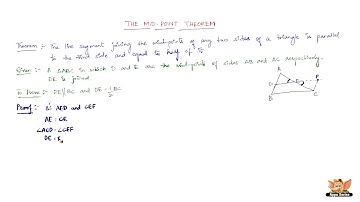 THE MID-POINT THEOREM
Theorem :- The line segment joining the mid-points of any two sides of a triangle is parallel
to the third side and equal to half of it.
Given :- A ΔABC in which D and E are the mid-points of sides AB and AC respectively.
DE is joined.
To Prove :- DE∥BC and DE = 1/2 BC
Proof :- Δs AED and CEF
AE = CE
DE = E
A
D E F
B C